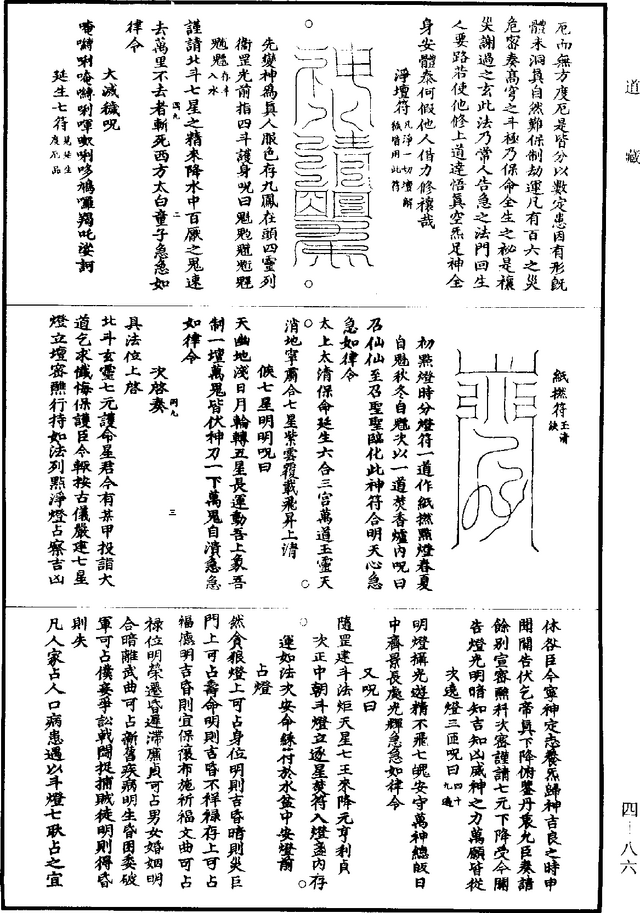 道藏
厄而無方度厄是皆分以數定患因有形旣
體未洞真自然難保制劫運凡有百六之災
危密奏高穹之斗極乃保命全生之祕是禳
災謝過之玄此法乃常人告急之法門回生
人要路若使他修上道達悟真空炁足神全
身安體泰何假他人借力修禳哉
淨壇符凡淨一切壇解穢皆用此符
先變神爲真人服色存九鳳在頭四靈列
衞罡光前指四斗護身呪曰魁䰢䰡䰢魓
魒魒存斗入水
謹請北斗七星之精來降水中百厭之鬼速
去萬里不去者斬死西方太白童子急急如
律令
大滅穢呪
唵唎唵唎唎嚩羅羯吒娑訶
延生七符見延生度厄品
紙撚符玉清訣
初點燈時分燈符一道作紙撚點燈春夏
自魁秋冬自魁次以一道焚香爐內呪曰
召仙仙至召聖聖臨化此神符合明天心急
急如律令
太上太清保命延生六合三宮萬道玉靈天
消地寧肅合七星紫雲覆載飛昇上清
俠七星明明呪曰
天幽地淺日月輪轉五星長運動吾上象吾
制一壇萬鬼皆伏神刀一下萬鬼自潰急急
如律令
次啓奏
具法位上啓
北斗玄靈七元護命星君今有某甲投詣大
道乞求懺悔保護臣今輒按古儀嚴建七星
燈立壇密醮行持如法列點淨燈占察吉凶
休咎臣今寧神定志養炁歸神吉良之時申
聞開告伏乞帝真下降俯鑒丹衷允臣奏請
餘別宣齋醮科次密謹請七元下降受今關
告燈光明暗知吉知凶威神之力萬願皆從
次遶燈三匝呪曰四十九遍
明燈攝光遊精不飛七魄安守萬神總皈日
中齋景長處光輝急急如律令
又呪曰
隨罡建斗法炬天星七王來降元亨利貞
次正中朝斗燈立逐星焚符入燈盞內存
運如法次安命蘇苻於水盆中安燈前
占燈
然貪狼燈上可占身位明則吉昏暗則災巨
門上可占壽命明則吉昏不祥祿存上可占
福德明吉昏則宜保禳布施祈福文曲可占
祿位明榮遷昏遲滯廉貞可占男女婚姻明
合暗離武曲可占漸舊疾病明生昏困委破
軍可占僕妾爭訟戰鬬捉捕賊徒明則得昏
則失
凡人家占人口病患遇以斗燈七耿占之宜
四—八六